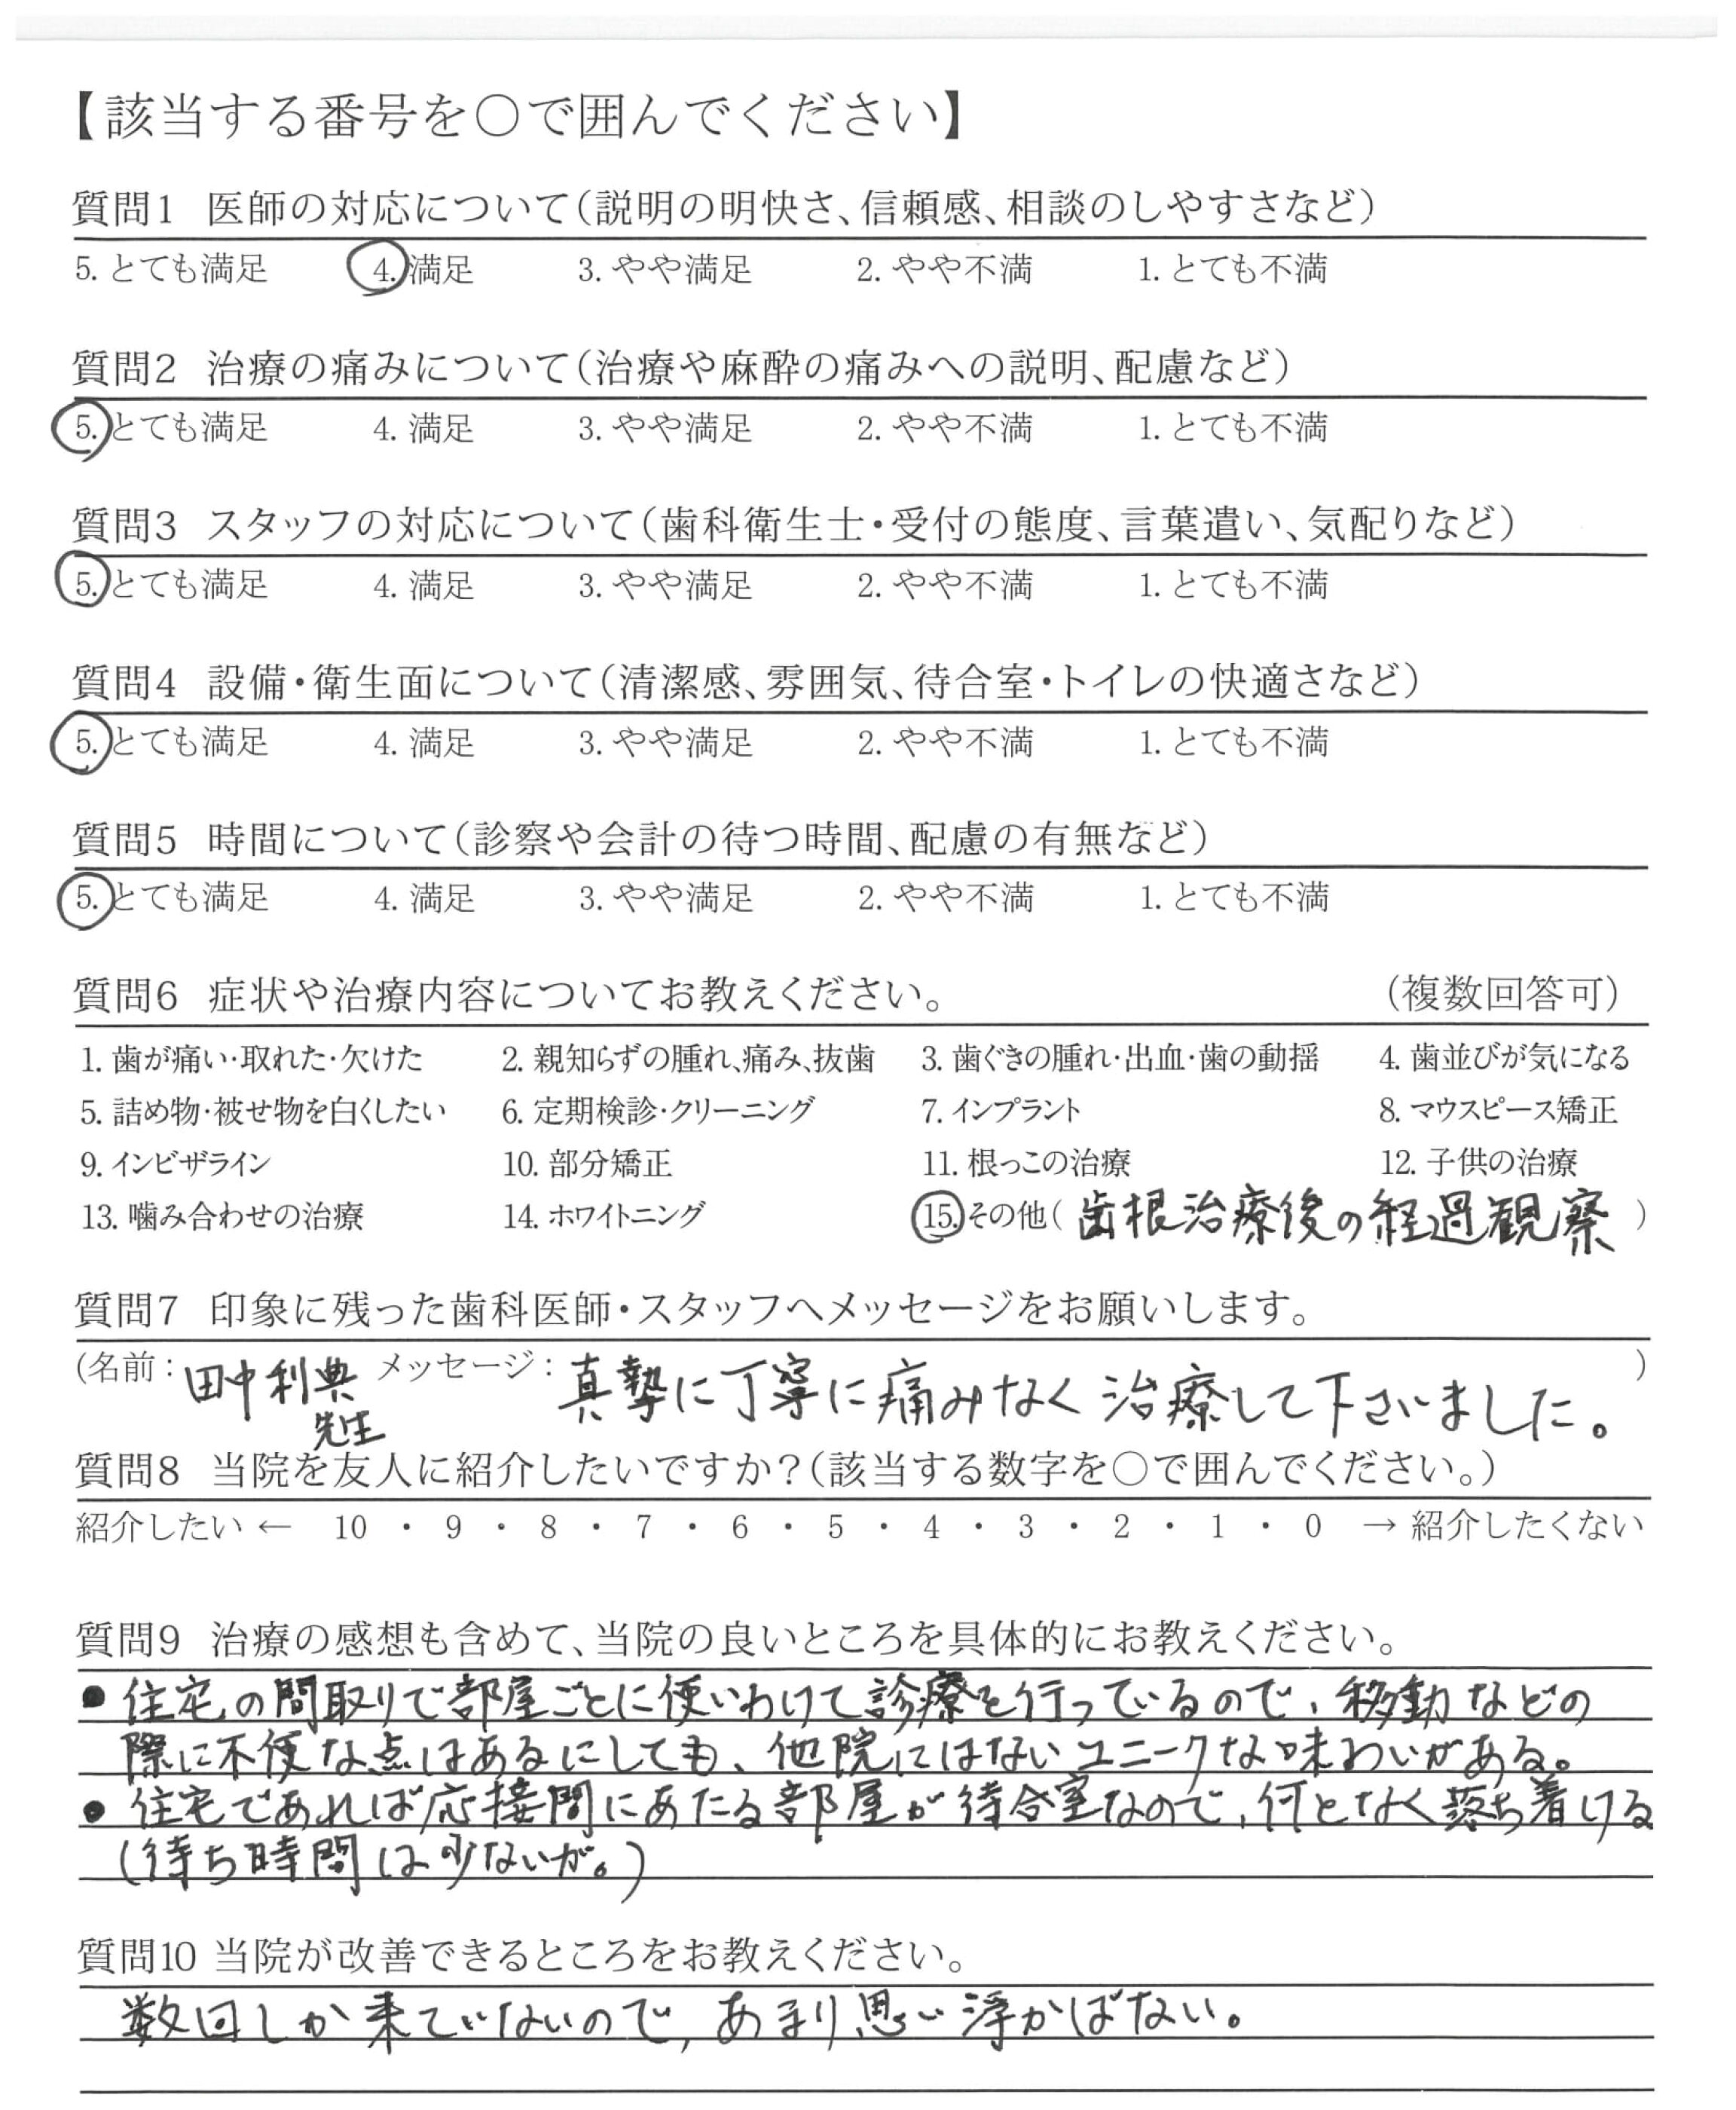 【該当する番号を○で囲んでください】
質問1 医師の対応について（説明の明快さ、信頼感、相談のしやすさなど）
5. とても満足 4. 満足 3. やや満足 2. やや不満 1. とても不満
質問2 治療の痛みについて（治療や麻酔の痛みへの説明、配慮など）
5. とても満足 4. 満足 3. やや満足 2. やや不満 1. とても不満
質問3 スタッフの対応について（歯科衛生士・受付の態度、言葉遣い、気配りなど）
5. とても満足 4. 満足 3. やや満足 2. やや不満 1. とても不満
質問4 設備・衛生面について（清潔感、雰囲気、待合室・トイレの快適さなど）
5. とても満足 4. 満足 3. やや満足 2. やや不満 1. とても不満
質問5 時間について（診察や会計の待つ時間、配慮の有無など）
5. とても満足 4. 満足 3. やや満足 2. やや不満 1. とても不満
質問6 症状や治療内容についてお教えください。 （複数回答可）
1. 歯が痛い・取れた・欠けた 2. 親知らずの腫れ、痛み、抜歯 3. 歯ぐきの腫れ・出血・歯の動揺 4. 歯並びが気になる
5. 詰め物・被せ物を白くしたい 6. 定期検診・クリーニング 7. インプラント 8. マウスピース矯正
9. インビザライン 10. 部分矯正 11. 根っこの治療 12. 子供の治療
13. 噛み合わせの治療 14. ホワイトニング 15. その他（ 歯根治療後の経過観察 ）
質問7 印象に残った歯科医師・スタッフへメッセージをお願いします。
（名前：田中利典先生 メッセージ：真摯に丁寧に痛みなく治療して下さいました。）
質問8 当院を友人に紹介したいですか？（該当する数字を○で囲んでください。）
紹介したい ← 10 ・ 9 ・ 8 ・ 7 ・ 6 ・ 5 ・ 4 ・ 3 ・ 2 ・ 1 ・ 0 → 紹介したくない
質問9 治療の感想も含めて、当院の良いところを具体的にお教えください。
● 住宅の間取りで部屋ごとに使いわけて診療を行っているので、移動などの
際に不便な点はあるにしても、他院にはないユニークな味わいがある。
● 住宅であれば応接間にあたる部屋が待合室なので、何となく落ち着ける
（待ち時間は少ないが。）
質問10 当院が改善できるところをお教えください。
数回しか来ていないので、あまり思い浮かばない。